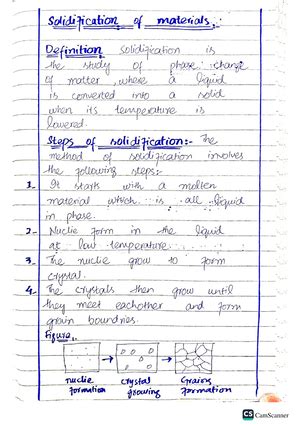 Solidification of materials:
Definition Solidification is
the study of phase change
of matter, where a liquid
is converted into a solid
when its temperature is
lowered.
Steps of solidification:- The
method of solidification involves
the following steps:-
1- It starts with a molten
material which is all liquid
in phase.
2- Nuclie form in the liquid
at low temperature
3- The nuclie grow to form
crystal.
4- The crystals then grow until
they meet eachother and form
grain boundries.
Figure
nuclie formation
crystal growing
Grains formation
CS CamScanner